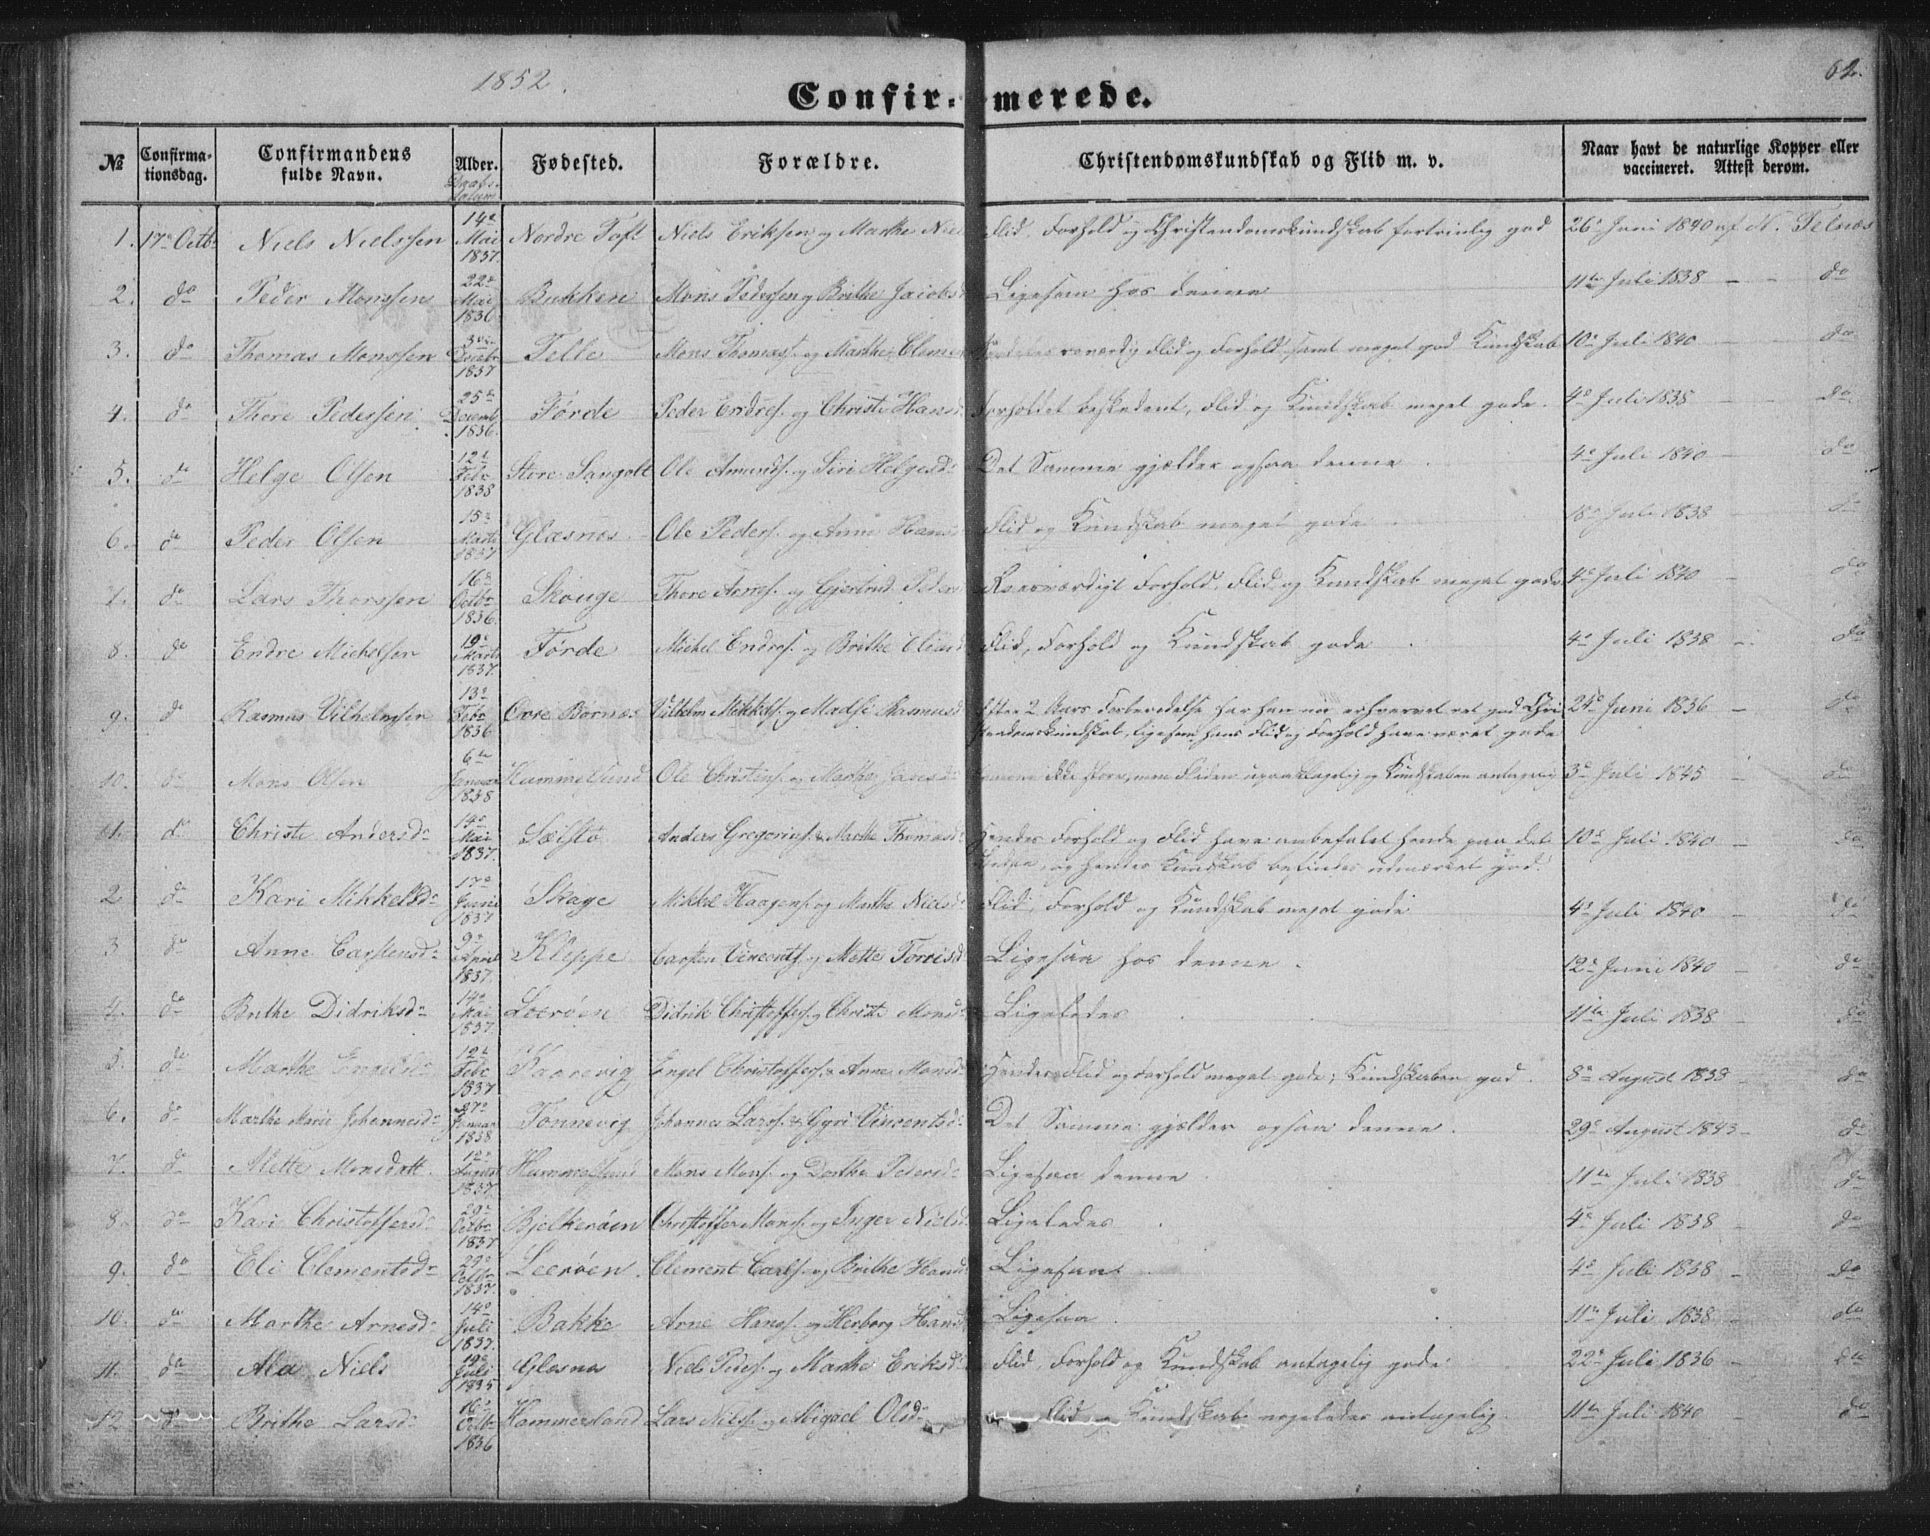 1852.
62.
Confir-merede.
№ Confirma-tionsdag. Confirmandens fulde Navn. Alder. Fødested. Forældre. Christendomskundskab og Flid m. v. Naar havt de naturlige Kopper eller vaccineret. Attest derom.
1. 17de Octbr Niels Nielssen 14de Mai 1837. Nordre Toft Niels Eriksen og Marthe Niel Flid, Forhold og Christendomskundskab fortrinlig god 26de Juni 1840 af N. Telnæs
2. do Peder Monssen 22de Mai 1836 Bukken Mons Pedersen og Brithe Jacobsd Ligesaa hos denne 11te Juli 1838 - - do
3. do Thomas Monssen 1837 Telle Mons Thomass. og Marthe Clemen Flid og Forhold samt meget god Kundskab 10de Juli 1840 - do
4. do Thore Pederssen 25de Decemb 1836. Førde Peder Endres. og Christi Hansd Forholdet beskedent, Flid og Kundskab meget gode. 4de Juli 1838 - - do
5. do Helge Olsen 12te Febr 1838 Store Sangolt Ole Amunds. og Siri Helgesdr Det Samme gjælder ogsaa denne. 4de Juli 1840 - do
6. do Peder Olsen 15de Marts 1837 Glæsnæs Ole Peders. og Anna Hans Flid og Kundskab meget gode. 18de Juli 1838 - do
7. do Lars Thorssen 16de Octbr 1836. Skouge Thore Arnes. og Gjertrud Peders Roesværdigt Forhold, Flid og Kundskab meget gode 4de Juli 1840 - do
8. do Endre Michelsen 19de Marts 1837. Førde Michel Endres. og Brithe Eliasd Flid, Forhold og Kundskab gode. 4de Juli 1838 - do
9. do Rasmus Vilhelmsen 13de Febr 1836 Øvre Bornæs Vilhelm Mikkels. og Madsi Rasmusd Efter 2 Aars Forberedelse har han nu erhvervet ret god Chri 24de Juni 1836 - do
stendomskundskab, ligesom hans Flid og Forhold have været gode
10. do Mons Olsen 6te Januar 1838 Hummelsund Ole Christens. og Marthe Jansdr ikke store, men Fliden upaaklagelig og Kundskaben antagelig 3de Juli 1845 - do
1. do Christi Andersdr 14de Mai 1837. Sælstø Anders Gregorius. & Marthe Thomasdr Hendes Forhold og Flid have anbefalet hende paa det 10de Juli 1840 - do
og hendes Kundskab befindes udmærket god.
2 do Kari Mikkelsdr 17de Juni 1837 Skage Mikkel Haagens. og Marthe Nielsd Flid, Forhold og Kundskab meget gode 4de Juli 1840 - do
3 do Anne Carstensdr 9de April 1837. Kleppe Carsten Vincents. og Mette Torrisd Ligesaa hos denne. 12te Juni 1840 - do
4. do Brithe Didriksdr 14de Mai 1837. Leerøen Didrik Christoffers. og Christi Monsd Ligeledes 11te Juli 1838 - do
5. do Marthe Engelsdr 12te Febr 1837 Kaarevig Engel Christoffers. & Anne Monsd Hendes Flid og Forhold meget gode; Kundskaben god. 8de August 1838 - do
6. do Marthe Marie Johannesdr 27de Januar 1838 Tonnevig Johannes Lars. & Gyri Vincentsd Det Samme gjælder ogsaa denne. 29de August 1843 - do
7. do Alette Monsdatt. 12te August 1837. Hummelsund Mons Mons. og Dorthe Petersdr Ligesaa denne 11te Juli 1838 do
8. do Kari Christoffersdr 29de Octbr 1837 Bjelkerøen Christoffer Mons. og Inger Nielsd Ligeledes 4de Juli 1838 - do
9. do Eli Clementsdr 29de Octbr 1837. Leerøen. Clement Carls. og Brithe Hansd Ligesaa 4de Juli 1838 - do
10. do Marthe Arnesdr 14de Juli 1837. Bakke Arne Hans. og Herborg Hansd Ligesaa 11te Juli 1838 - do
11. do Ala Niels 19de Juli 1835 Glesnæs Niels Peders. og Marthe Eriksd Flid, Forhold og Kundskab antagelig gode 22de Juli 1836 - do
12 do Brithe Larsdr 16de Octbr 1836 Hammersland Lars Nils. og Abigael Olsdr Flid og Kundskab nogenledes antagelig. 11te Juli 1840 - do